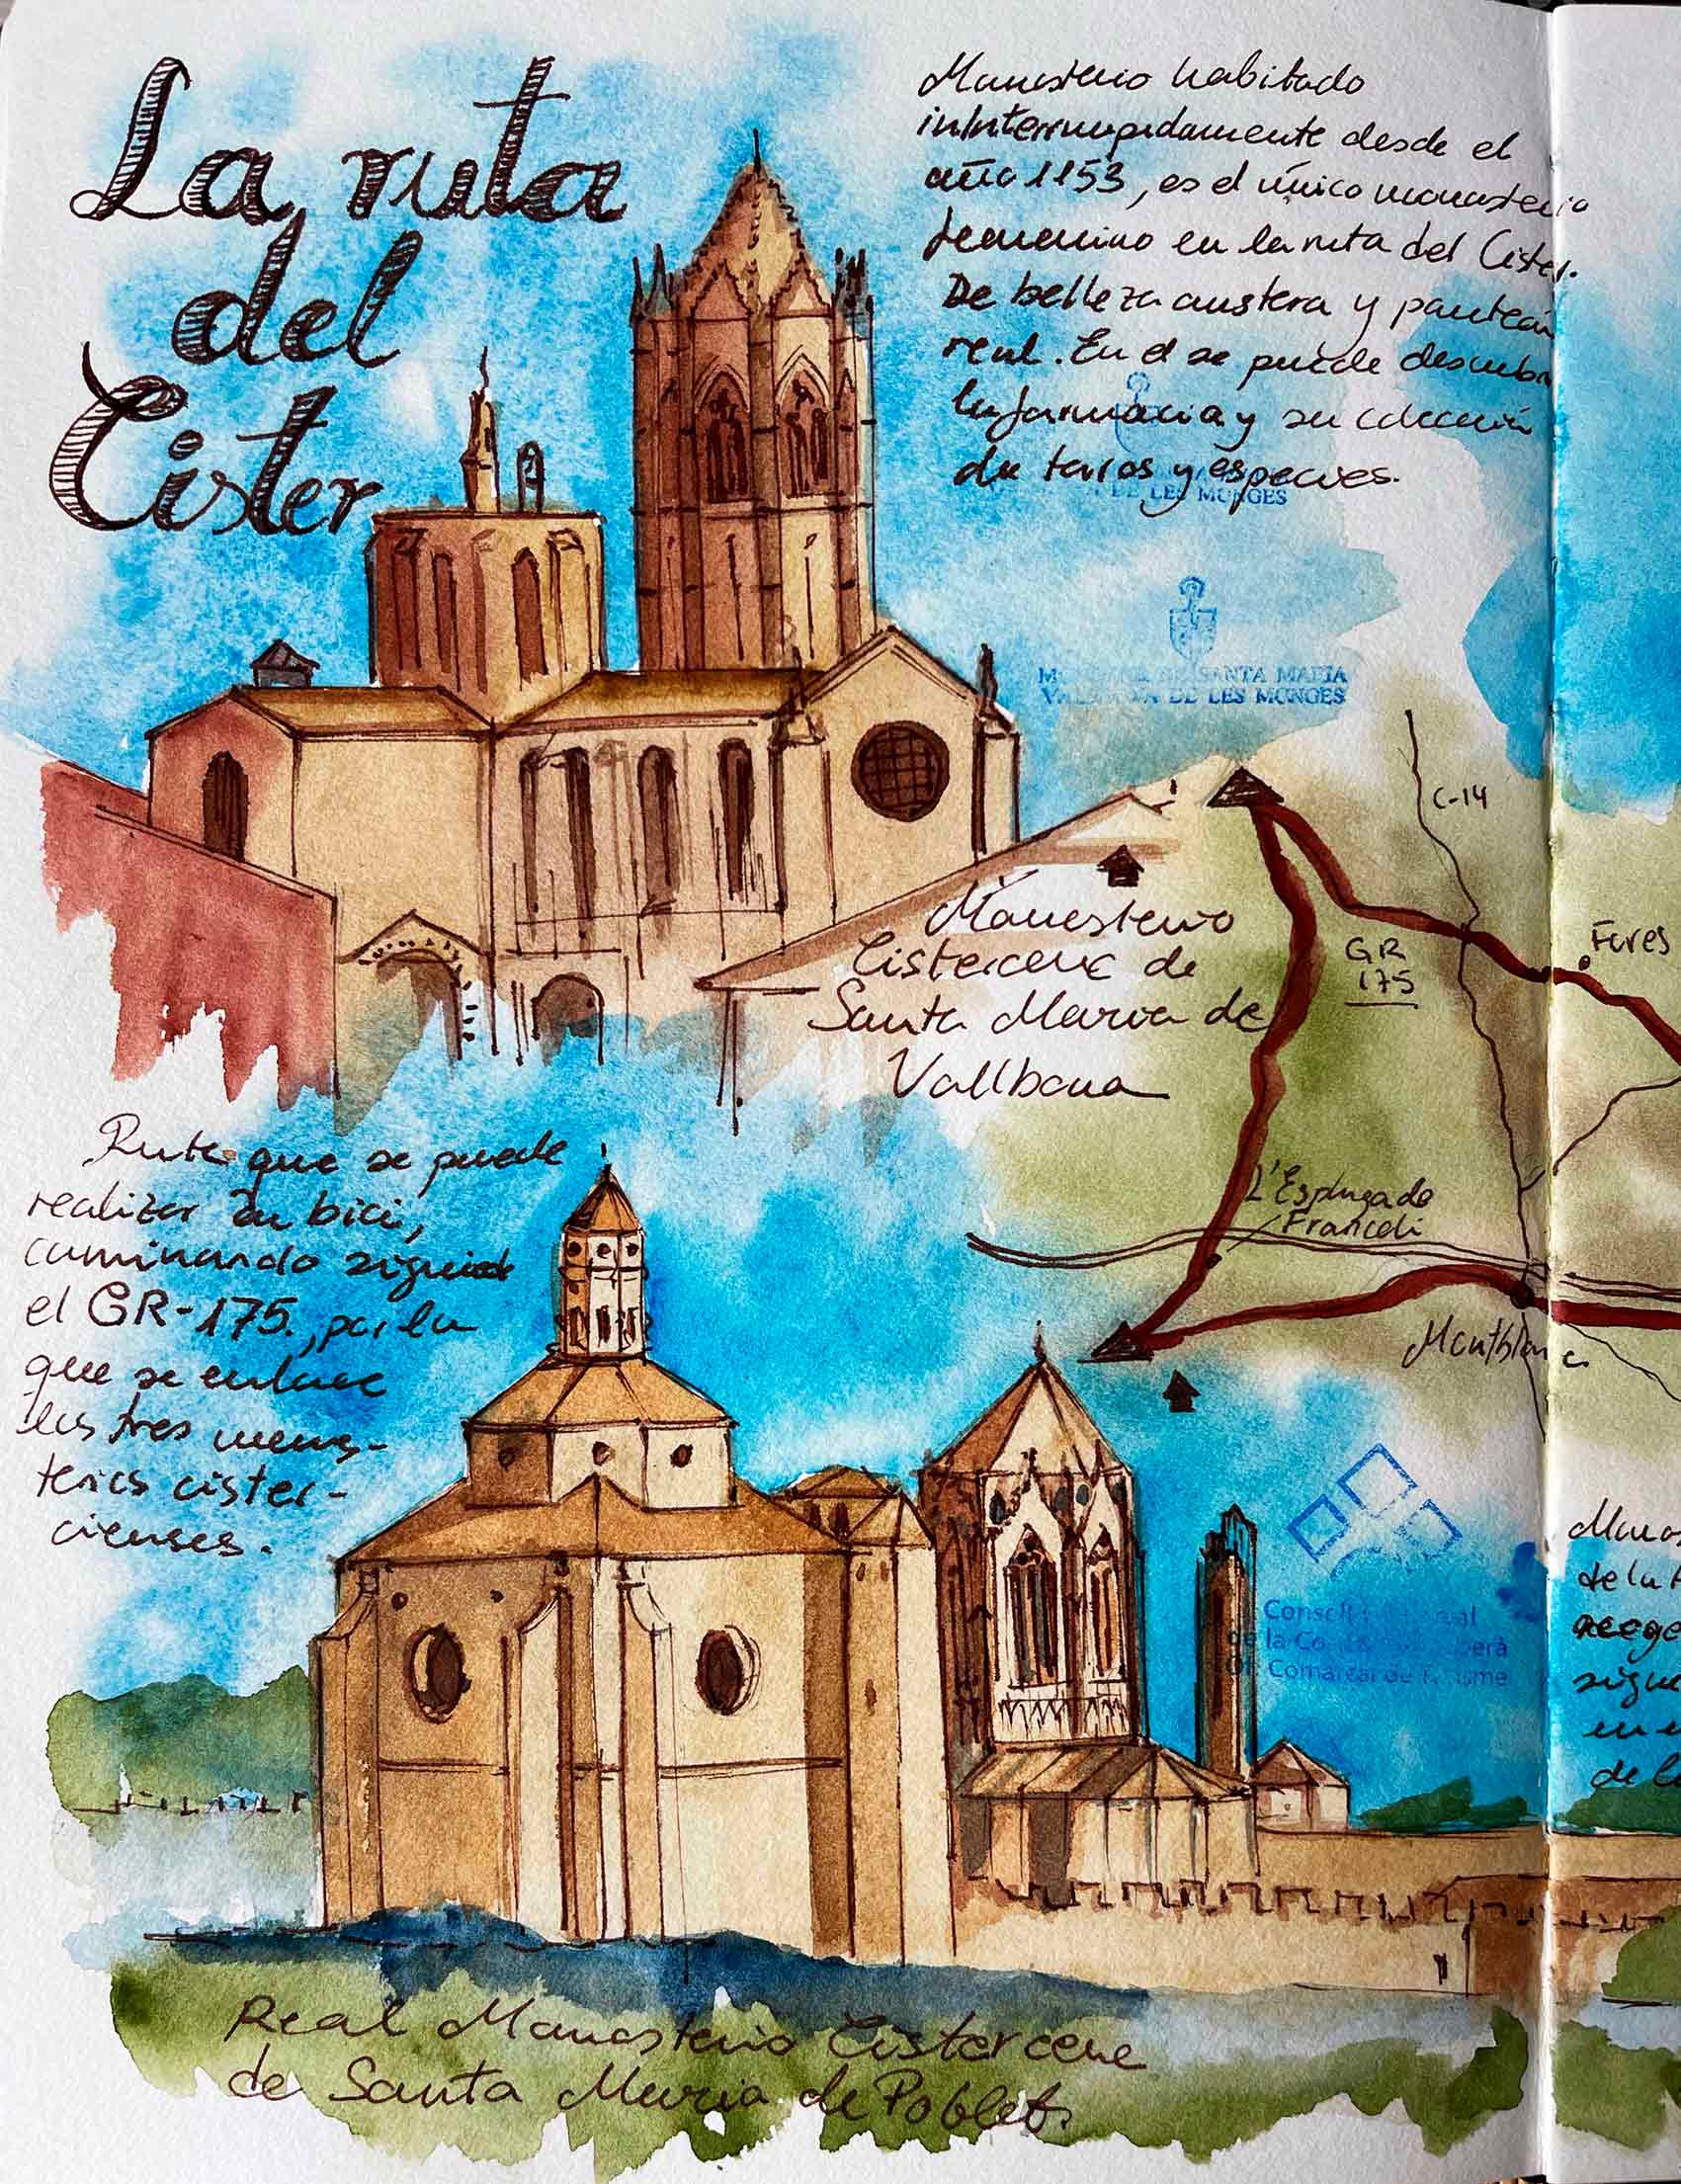 La ruta
del
Cister
Monasterio habitado
ininterrumpidamente desde el
año 1153, es el único monasterio
femenino en la ruta del Cister.
De belleza austera y panteón
real. En el se puede descubrir
la farmacia y su colección
de tarros y especies.
DE LES MONGES
SANTA MARIA
DE LES MONGES
C-14
Monesterio
Cistercenc de
Santa Maria de
Vallbona
GR
175
Fores
Ruta que se puede
realizar en bici,
caminando siguiendo
el GR-175, por la
que se enlace
los tres monas-
terios cister-
cienses.
L'Espluga de
Francolí
Montblanc
Consell
de la
Comarcal de
Monas
de la
acoge
sigue
en
de l
Real Monasterio Cistercenc
de Santa Maria de Poblet.